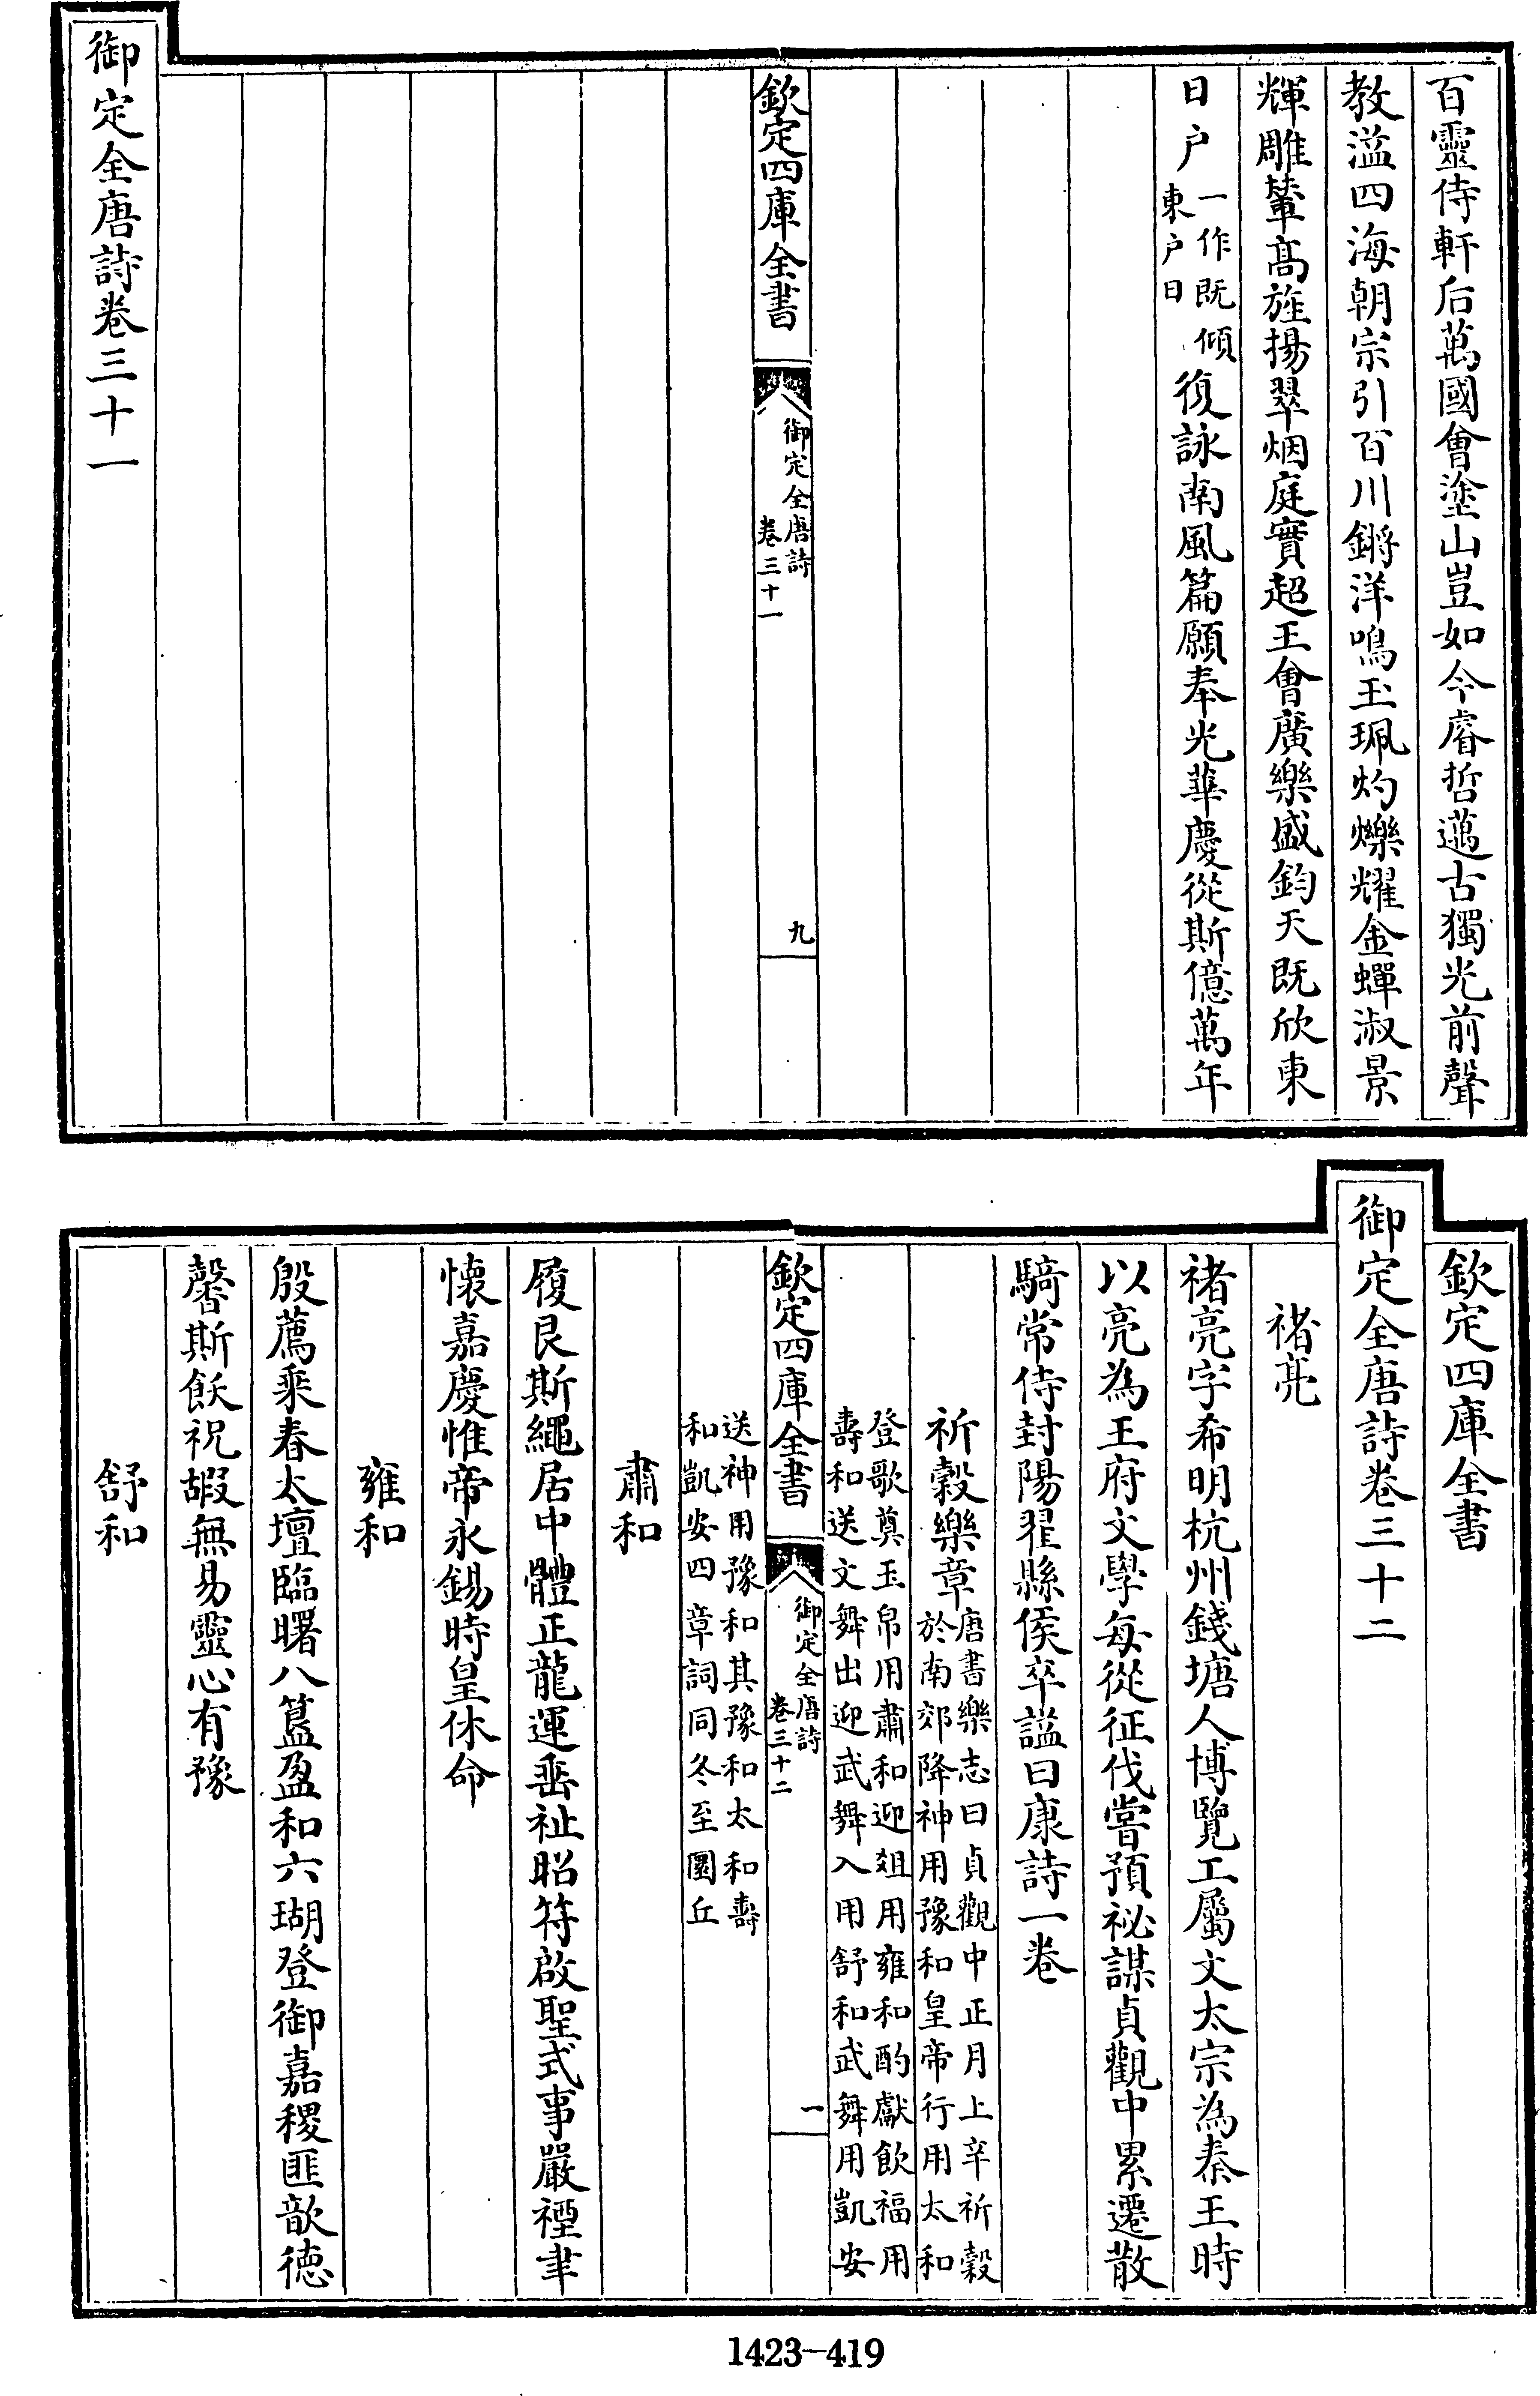 百靈侍軒后萬國會塗山豈如今睿哲邁古獨光前聲
教溢四海朝宗引百川鏘洋鳴玉珮灼爍耀金蟬淑景
輝雕輦高旌揚翠烟庭實超王會廣樂盛鈞天既欣東
日户一作既傾東户日復詠南風篇願奉光華慶從斯億萬年
欽定四庫全書
御定全唐詩
卷三十一
九
御定全唐詩卷三十一
欽定四庫全書
御定全唐詩卷三十二
褚亮
褚亮字希明杭州錢塘人博覽工屬文太宗為秦王時
以亮為王府文學每從征伐嘗預祕謀貞觀中累遷散
騎常侍封陽翟縣侯卒謚曰康詩一卷
祈穀樂章唐書樂志曰貞觀中正月上辛祈穀
於南郊降神用豫和皇帝行用太和
登歌奠玉帛用肅和迎俎用雍和酌獻飲福用
壽和送文舞出迎武舞入用舒和武舞用凱安
欽定四庫全書
御定全唐詩
卷三十二
一
送神用豫和其豫和太和壽
和凱安四章詞同冬至圜丘
肅和
履艮斯繩居中體正龍運垂祉昭符啟聖式事嚴禋聿
懷嘉慶惟帝永錫時皇休命
雍和
殷薦乘春太壇臨曙八簋盈和六瑚登御嘉稷匪歆德
馨斯飫祝嘏無易靈心有豫
舒和
1423-419